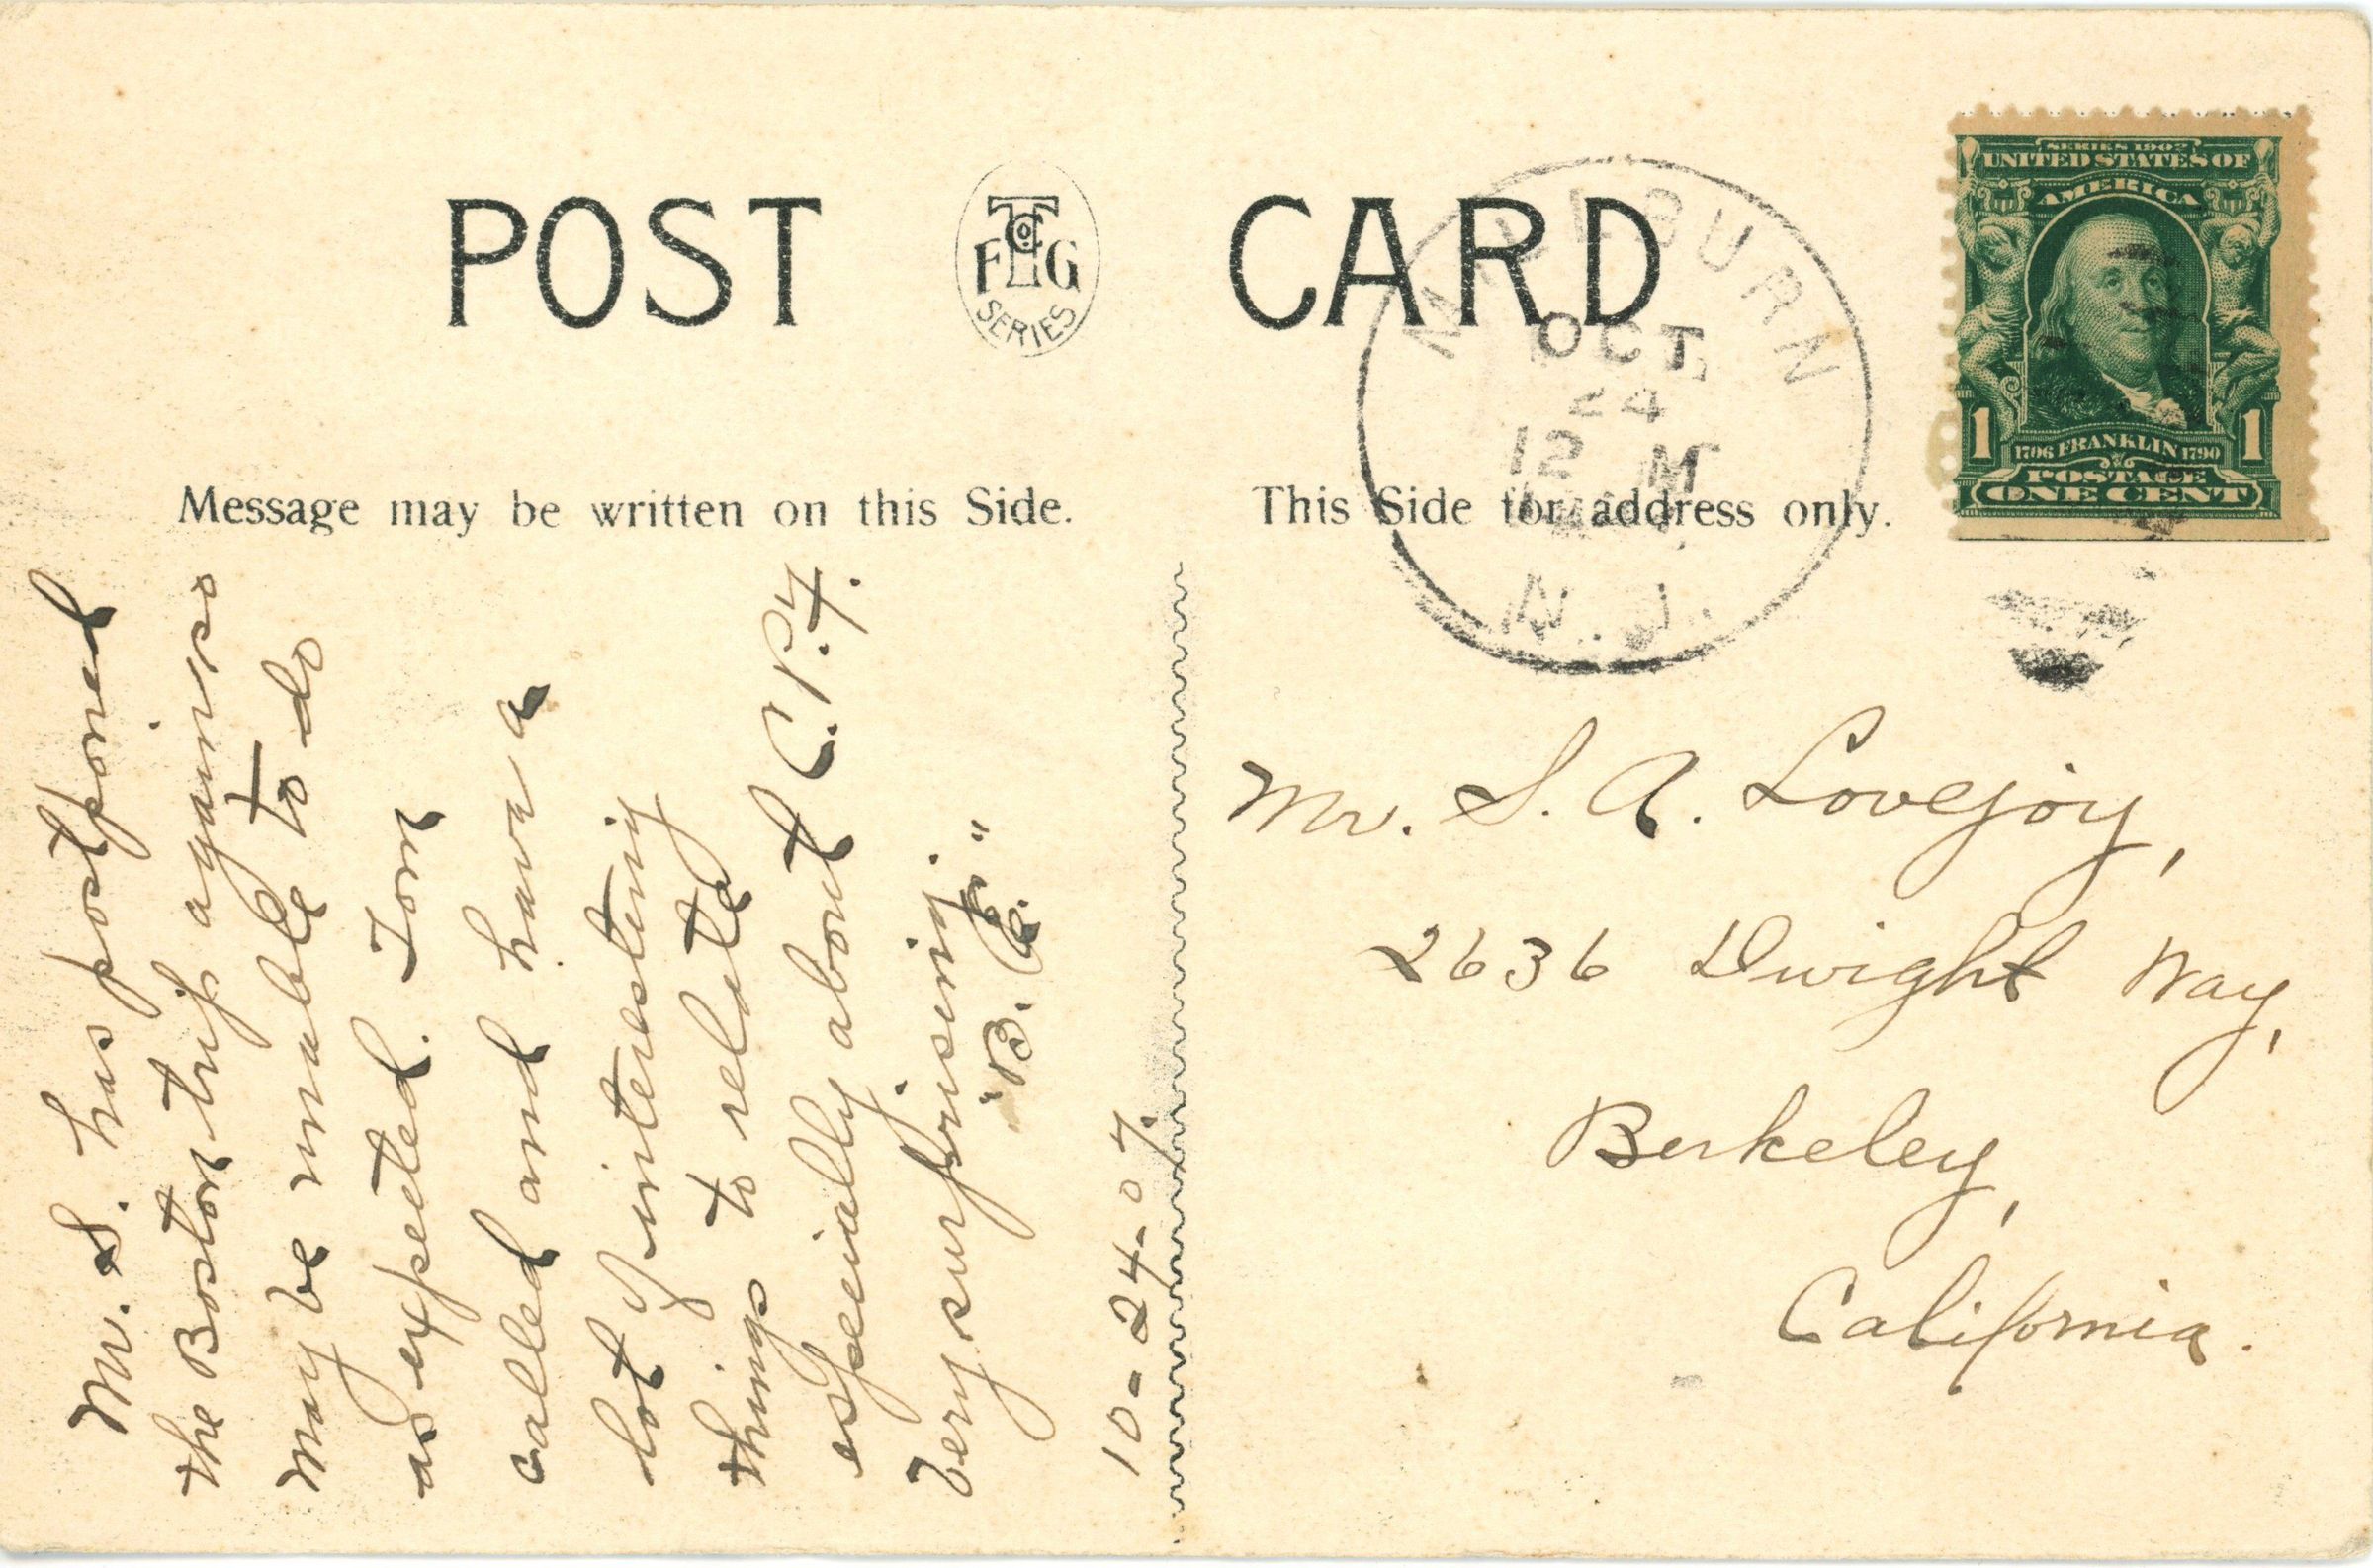 POST CARD
F T Co. G
SERIES
MILLBURN
OCT
24
12 M
N.J.
SERIES 1902
UNITED STATES OF
AMERICA
1 1
1706 FRANKLIN 1790
POSTAGE
ONE CENT
Message may be written on this Side.
This Side for address only.
Mr. S. has postponed
the Boston trip again so
may be unable to do
as expected. Tom
called and have a
lot of interesting
things to relate
especially about C.P.Y.
Very surprising.
"B. B."
10-24-07.
Mr. S. A. Lovejoy,
2636 Dwight Way,
Berkeley,
California.